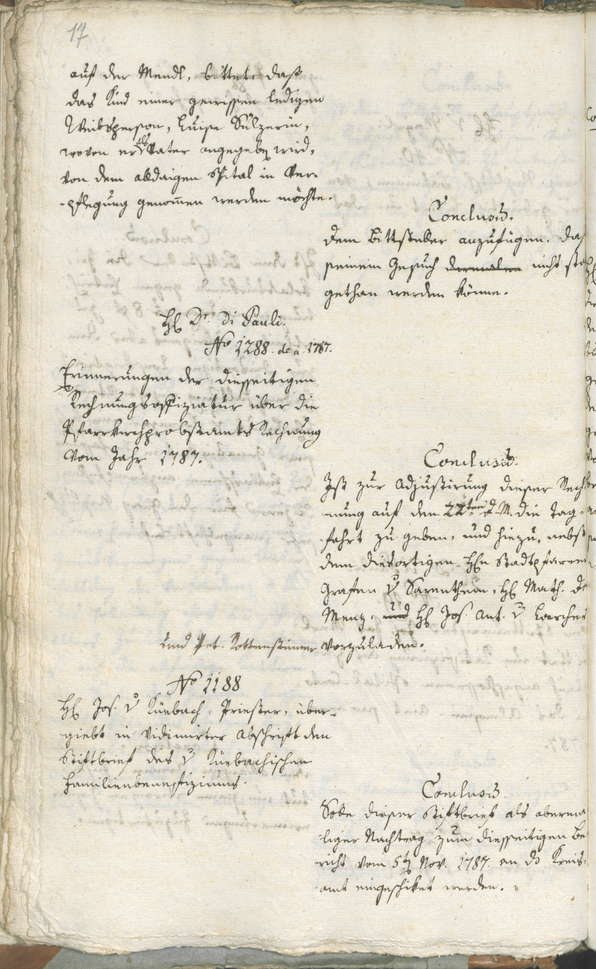 17
auf der Mendl, bittet, daß
das Kind einer gewissen ledigen
Weibsperson, Luisa Sulzerin,
wovon er Vater angegeben wird,
von dem alldaigen Spital in Ver-
-pflegung genommen werden möchte.
Conclusum.
Dem Bittsteller anzufügen, daß
seinem Gesuch dermalen nicht statt
gethan werden könne.
H. Dr. Di Pauli.
No 1288. de a. 1787.
Erinnerungen der diesseitigen
Rechnungsoffiziatur über die
Pfarrkirchprobstamts Rechnung
vom Jahr 1787.
Conclusum.
Ist zur Adjustirung dieser Rech-
-nung auf den 22ten d. M. die Tag-
-fahrt zu geben, und hiezu, nebst
dem diesortigen Hn Stadtpfarrer
Grafen v Sarenthein, H. Math. de
Menz, und H. Jos. Ant. v Larcher
und Pet. Rottensteiner vorzuladen.
No 1188
H. Jos. v Kürbach, Priester, über-
giebt in vidimirter Abschrift den
Stiftbrief des v Kürbachischen
Familienbenefiziums.
Conclusum.
Solle dieser Stiftbrief als aberma-
liger Nachtrag zum diesseitigen Be-
richt vom 5 Nov. 1787 an das Kreis-
amt eingeschicket werden.